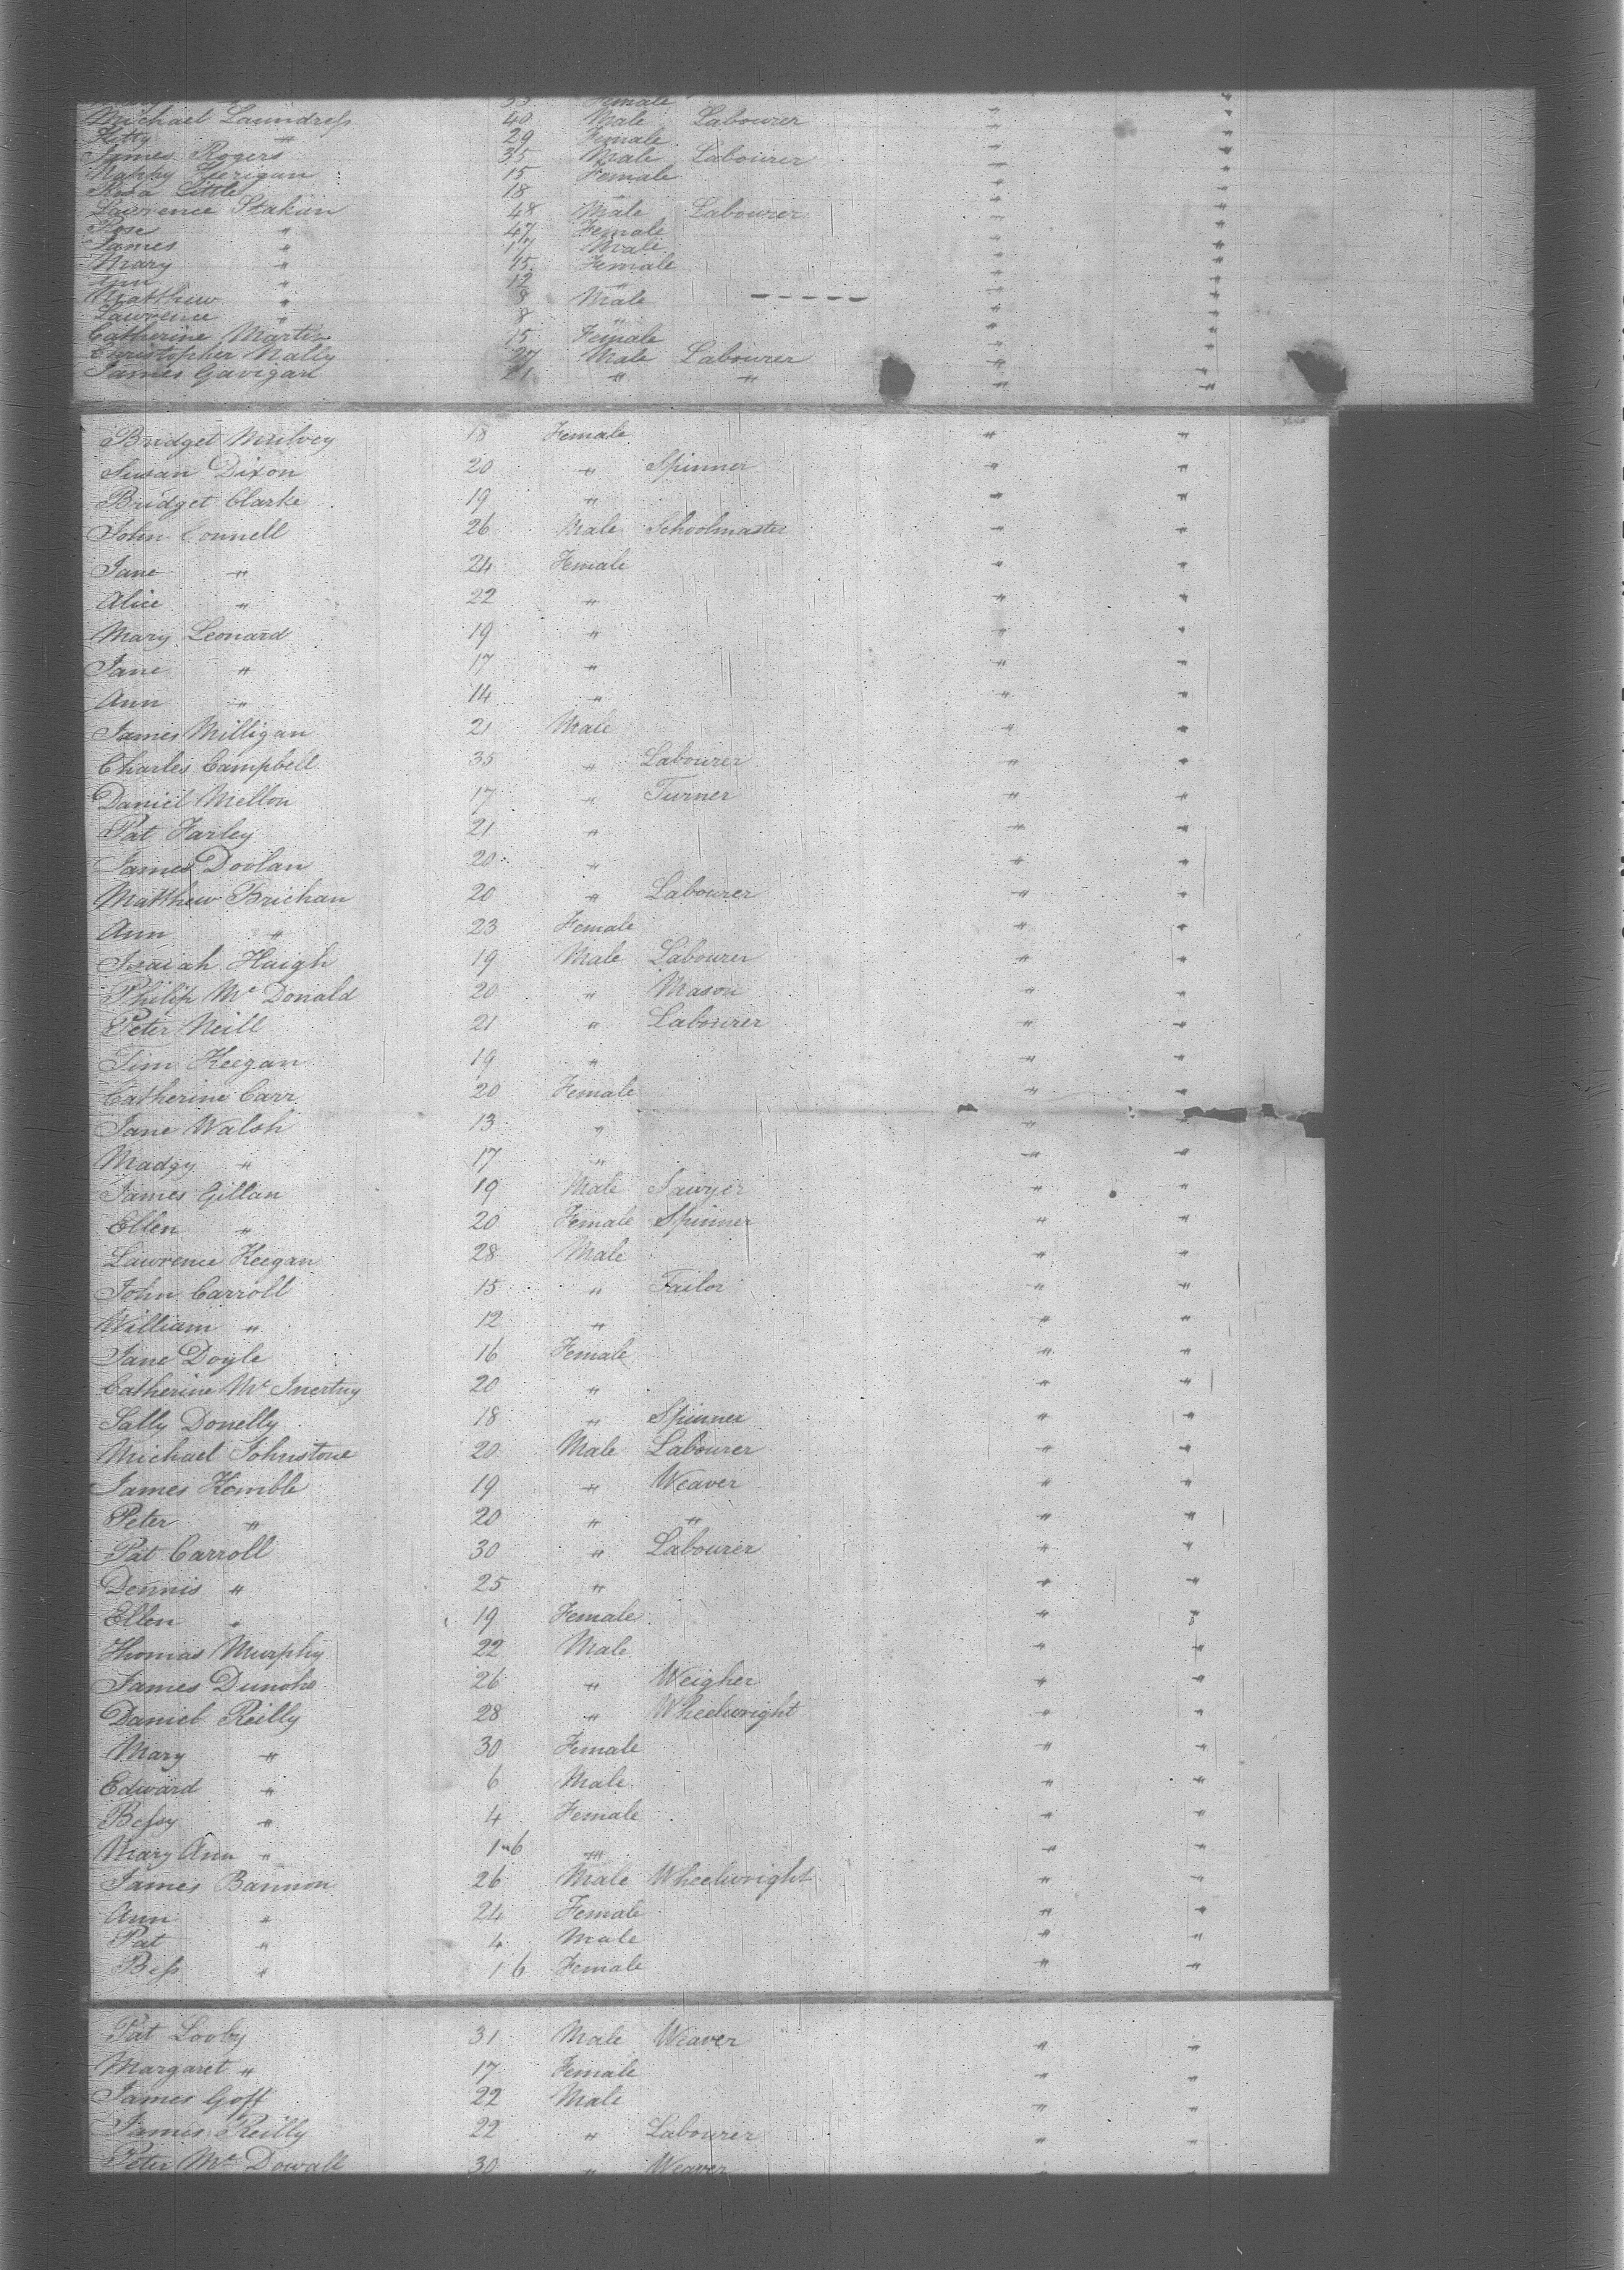 33 Female " "
Michael Laundress 40 Male Labourer " "
Kitty " 29 Female " "
James Rogers 35 Male Labourer " "
Kerigan 15 Female " "
Rosa Little 18 " "
Lawrence Stakun 48 Male Labourer " "
Rose " 47 Female " "
James " 17 Male " "
Mary " 15 Female " "
Ann " 12 " " "
Matthew " 8 Male " "
Lawrence " 8 " " "
Catherine Martin 15 Female " "
Christopher Nally 27 Male Labourer " "
James Gavigan 21 " " " "
Bridget Mulvey 18 Female " "
Susan Dixon 20 " Spinner " "
Bridget Clarke 19 " " "
John Connell 26 Male Schoolmaster " "
Jane " 24 Female " "
Alice " 22 " " "
Mary Leonard 19 " " "
Jane " 17 " " "
Ann " 14 " " "
James Milligan 21 Male " "
Charles Campbell 35 " Labourer " "
Daniel Mellon 17 " Turner " "
Pat Farley 21 " " "
James Doolan 20 " " "
Matthew Brichan 20 " Labourer " "
Ann " 23 Female " "
Isaiah Haigh 19 Male Labourer " "
Philip Mc Donald 20 " Mason " "
Peter Neill 21 " Labourer " "
Tim Keegan 19 " " "
Catherine Carr 20 Female " "
Jane Walsh 13 " " "
Madgy " 17 " " "
James Gillan 19 Male Sawyer " "
Ellen " 20 Female Spinner " "
Lawrence Keegan 28 Male " "
John Carroll 15 " Tailor " "
William " 12 " " "
Jane Doyle 16 Female " "
Catherine Mc Inertny 20 " " "
Sally Donelly 18 " Spinner " "
Michael Johnstone 20 Male Labourer " "
James Kemble 19 " Weaver " "
Peter " 20 " " " "
Pat Carroll 30 " Labourer " "
Dennis " 25 " " "
Ellen " 19 Female " "
Thomas Murphy 22 Male " "
James Dunoho 26 " Weigher " "
Daniel Reilly 28 " Wheelwright " "
Mary " 30 Female " "
Edward " 6 Male " "
Bessy " 4 Female " "
Mary Ann " 1 " 6 " " "
James Bannon 26 Male Wheelwright " "
Ann " 24 Female " "
Pat " 4 Male " "
Bess " 1 6 Female " "
Pat Looby 31 Male Weaver " "
Margaret " 17 Female " "
James Goff 22 Male " "
James Reilly 22 " Labourer " "
Peter Mc Dowall 30 " Weaver " "